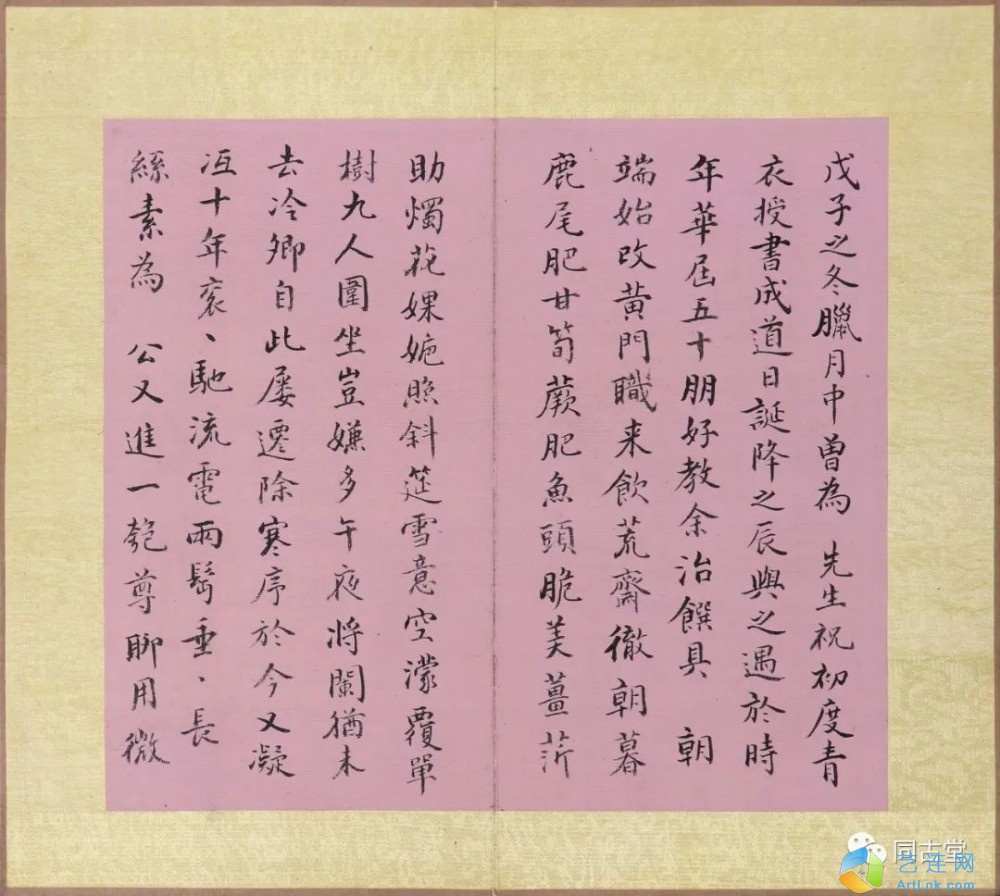 戊子之冬臘月中曾為 先生祝初度青
衣授書成道日誕降之辰與之遇於時
年華屆五十朋好教余治饌具 朝
端始改黃門職来飲荒齋徹朝暮
鹿尾肥甘筍蕨肥魚頭脆美薑芥
助燭花婐姽照斜筵雪意空濛覆單
樹九人圍坐豈嫌多午夜将闌猶未
去冷卿自此屢遷除寒序於今又凝
冱十年衮、馳流電兩髩垂、長
絲素為 公又進一匏尊聊用微
同古堂
艺连网
ArtLnk.com